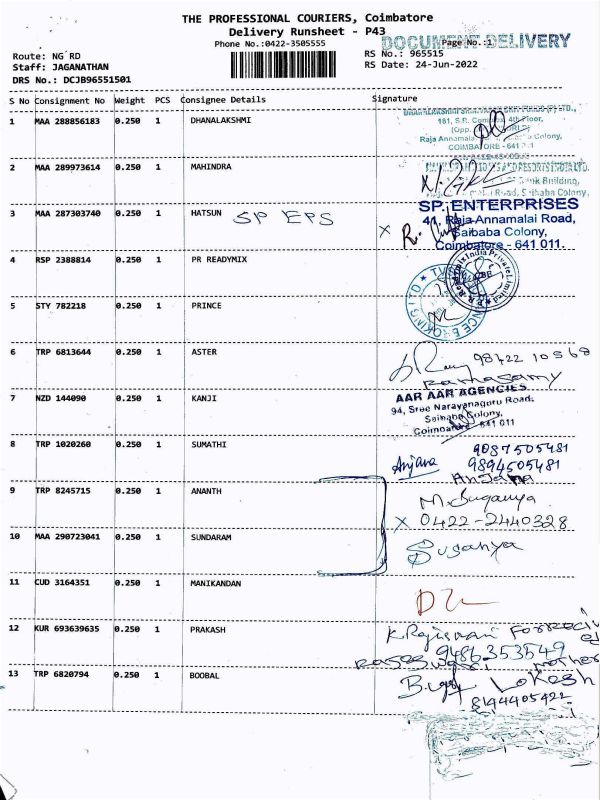 THE PROFESSIONAL COURIERS, Coimbatore
Delivery Runsheet - P43
DOCUMENT DELIVERY
Phone No.:0422-3505555
Page No.:1
Route: NG RD
RS No.: 965515
Staff: JAGANATHAN
RS Date: 24-Jun-2022
DRS No.: DCJB96551501
S No Consignment No Weight PCS Consignee Details Signature
1 MAA 288856183 0.250 1 DHANALAKSHMI
4th Floor,
Raja Annamalai Colony,
COIMBATORE - 641
2 MAA 289973614 0.250 1 MAHINDRA
Bank Building,
Road, Saibaba Colony,
3 MAA 287303740 0.250 1 HATSUN SP EPS
SP. ENTERPRISES
41, Raja Annamalai Road,
Saibaba Colony,
Coimbatore - 641 011.
4 RSP 2388814 0.250 1 PR READYMIX
India Private Limited
5 STY 782218 0.250 1 PRINCE
BROKING LTD
6 TRP 6813644 0.250 1 ASTER
Ramasamy
7 NZD 144090 0.250 1 KANJI
AAR AAR AGENCIES
94, Sree Narayanaguru Road,
Saibaba Colony,
Coimbatore - 641 011
8 TRP 1020260 0.250 1 SUMATHI
9087505481
Anjana 9894505481
Anjana
9 TRP 8245715 0.250 1 ANANTH
M. Suganya
X 0422-2440328
10 MAA 290723041 0.250 1 SUNDARAM
Suganya
11 CUD 3164351 0.250 1 MANIKANDAN
12 KUR 693639635 0.250 1 PRAKASH
9486353549
mother
13 TRP 6820794 0.250 1 BOOBAL
Lokesh
8144405422